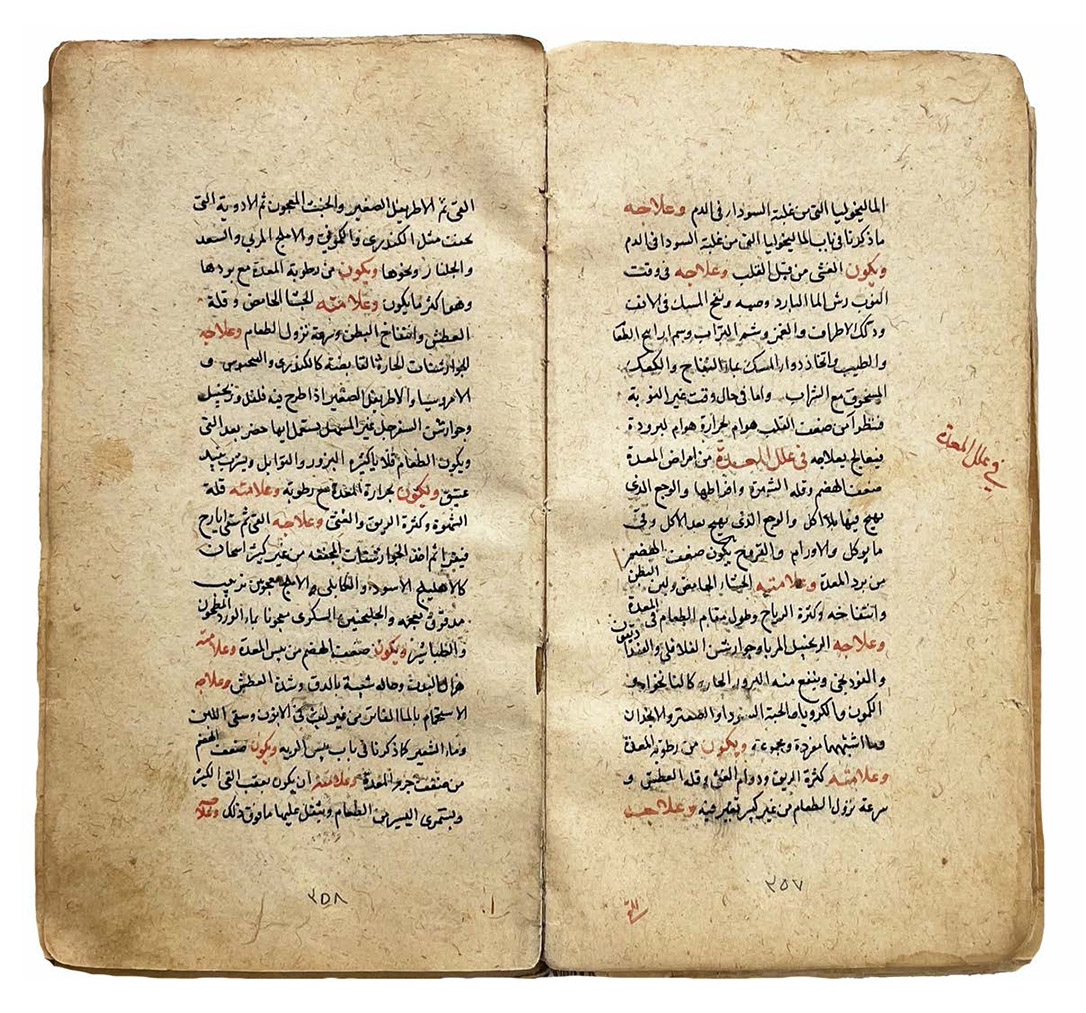 الماليخوليا التى من غلبة السودا فى الدم وعلاجه
ما ذكرنا فى باب الماليخوليا التى من غلبة السودا فى الدم
ويكون الغشى من قبل القلب وعلاجه فى وقت
النوب رش الما البارد وصبه ونفخ المسك فى الانف
ودلك الاطراف والغمز وشم التراب وسم ارايح الطعا
والطيب واتخاذ دوا المسك بما التفاح والكعك
المسحوق مع الشراب واما فى حال وقت غير النوبة
فننظر من ضعف القلب هو ام لحرارة هو ام لبرودة
فيعالج بعلاجه فى علل المعدة من امراض المعدة
ضعف الهضم وقلة الشهوة وافراطها والوجع الذى
يهيج فيها بلا اكل والوجع الذى يهيج بعد الاكل وقى
ما يوكل والاورام والقروح يكون ضعف الهضم
من برد المعدة وعلامته الجشا الحامض ولين البطن
وانتفاخه وكثرة الرياح وطول مقام الطعام فى المعدة
وعلاجه الزنجبيل المربا وجوارشن الفلافلى
وينفع منه البزور الحارة كالنانخواه
الكمون والكرويا والحبة السودا والصعتر والانجدان
وما اشبهها مفردة ومجموعة ويكون من رطوبة المعدة
وعلامته كثرة الريق ودوام الغثى وقلة العطش و
سرعة نزول الطعام من غير كبير تغير فيه وعلاجه
فى علل المعدة
٢٥٧
القى
القى ثم الاطريفل الصغير والخبث المعجون ثم الادوية التى
تجفف مثل الكندرى والكمونى والاملج المربى والسعد
والجلنار ونحوها ويكون من رطوبة المعدة مع بردها
وهو اكثر ما يكون وعلامته الجشا الحامض وقلة
العطش وانتفاخ البطن وسرعة نزول الطعام وعلاجه
الجوارشنات الحارة القابضة كالكندرى و
الامروسيا والاطريفل الصغير اذا طرح فيه فلفل وزنجبيل
وجوارشن السفرجل غير المسهل يستعمل ايها حضر بعد القى
ويكون الطعام قلايا كثيرة البزور والتوابل ويشرب نبيذ
عتيق ويكون لحرارة المعدة مع رطوبة وعلامته قلة
الشهوة وكثرة الريق والغثى وعلاجه القى ثم سقى ايارج
فيقرا ثم اخذ الجوارشنات المجففة من غير كبير اسخان
كالاهليلج الاسود والكابلى والاملج معجون بزبيب
مدقوق بعجمه والجلنجبين السكرى معجونا بماء الورد المطحون
والطباشير ويكون ضعف الهضم من يبس المعدة وعلامته
هزال البدن وحاله شبيهة بالدق وشدة العطش وعلاجه
الاستحمام بالما الفاتر من غير لبث فى الابزن وسقى اللبن
وماء الشعير كما ذكرنا فى باب يبس المريه ويكون ضعف الهضم
من ضعف جرم المعدة وعلامته ان يكون بعقب القى الكثير
ويستمرى اليسير من الطعام ويثقل عليها ما فوق ذلك وعلاجه
٢٥٨